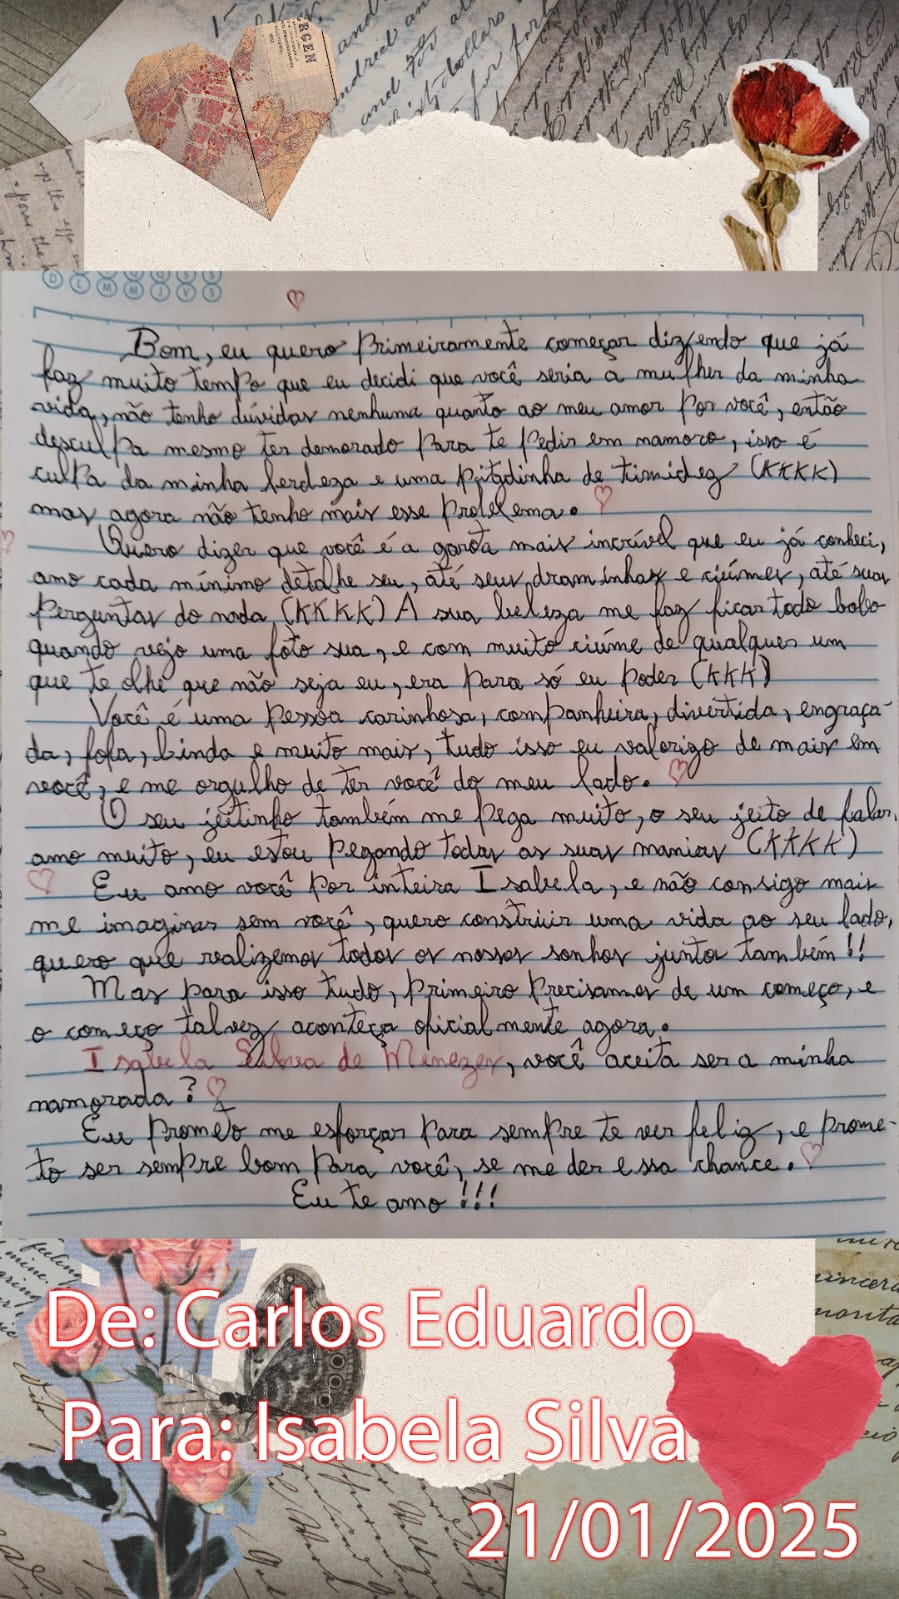 RGEN
D L M M J V S
Bom, eu quero primeiramente começar dizendo que já
faz muito tempo que eu decidi que você seria a mulher da minha
vida, não tenho dúvidas nenhuma quanto ao meu amor por você, então
desculpa mesmo ter demorado para te pedir em namoro, isso é
culpa da minha lerdeza e uma pitadinha de timidez (KKKK)
mas agora não tenho mais esse problema.
Quero dizer que você é a garota mais incrível que eu já conheci,
amo cada mínimo detalhe seu, até seus draminhas e ciúmes, até suas
perguntas do nada (KKKK) A sua beleza me faz ficar todo bobo
quando vejo uma foto sua, e com muito ciúme de qualquer um
que te olhe que não seja eu, era para só eu poder (KKK)
Você é uma pessoa carinhosa, companheira, divertida, engraça-
da, fofa, linda e muito mais, tudo isso eu valorizo de mais em
você, e me orgulho de ter você do meu lado.
O seu jeitinho também me pega muito, o seu jeito de falar,
amo muito, eu estou pegando todas as suas manias (KKKK)
Eu amo você por inteira Isabela, e não consigo mais
me imaginar sem você, quero construir uma vida ao seu lado,
quero que realizemos todos os nossos sonhos juntos também!!
Mas para isso tudo, primeiro precisamos de um começo, e
o começo talvez aconteça oficialmente agora.
Isabela Silva de Menezes, você aceita ser a minha
namorada?
Eu prometo me esforçar para sempre te ver feliz, e prome-
to ser sempre bom para você, se me der essa chance.
Eu te amo!!!
De: Carlos Eduardo
Para: Isabela Silva
21/01/2025